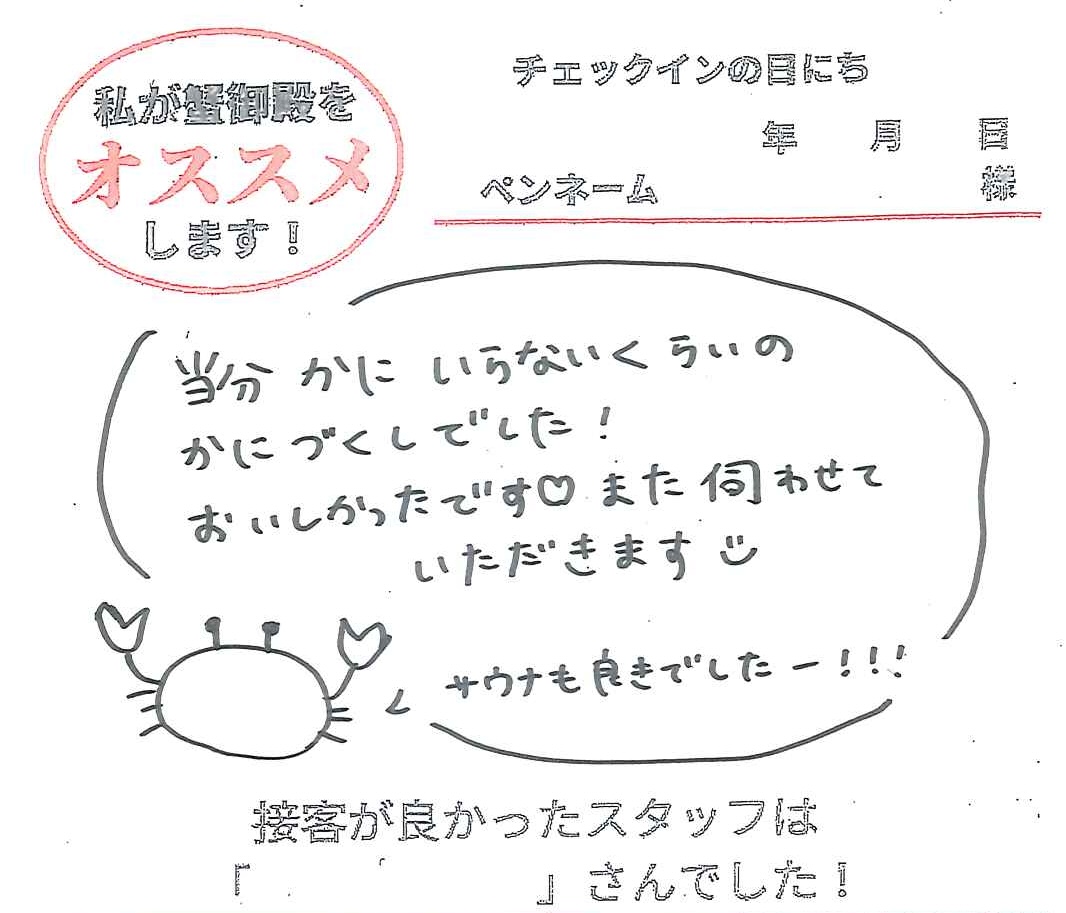 私が蟹御殿を
オススメ
します！
チェックインの日にち
年 月 日
ペンネーム 様
当分 かに いらないくらいの
かにづくしでした！
おいしかったです♡ また伺わせて
いただきます
サウナも良きでしたー！！！
接客が良かったスタッフは
「 」さんでした！